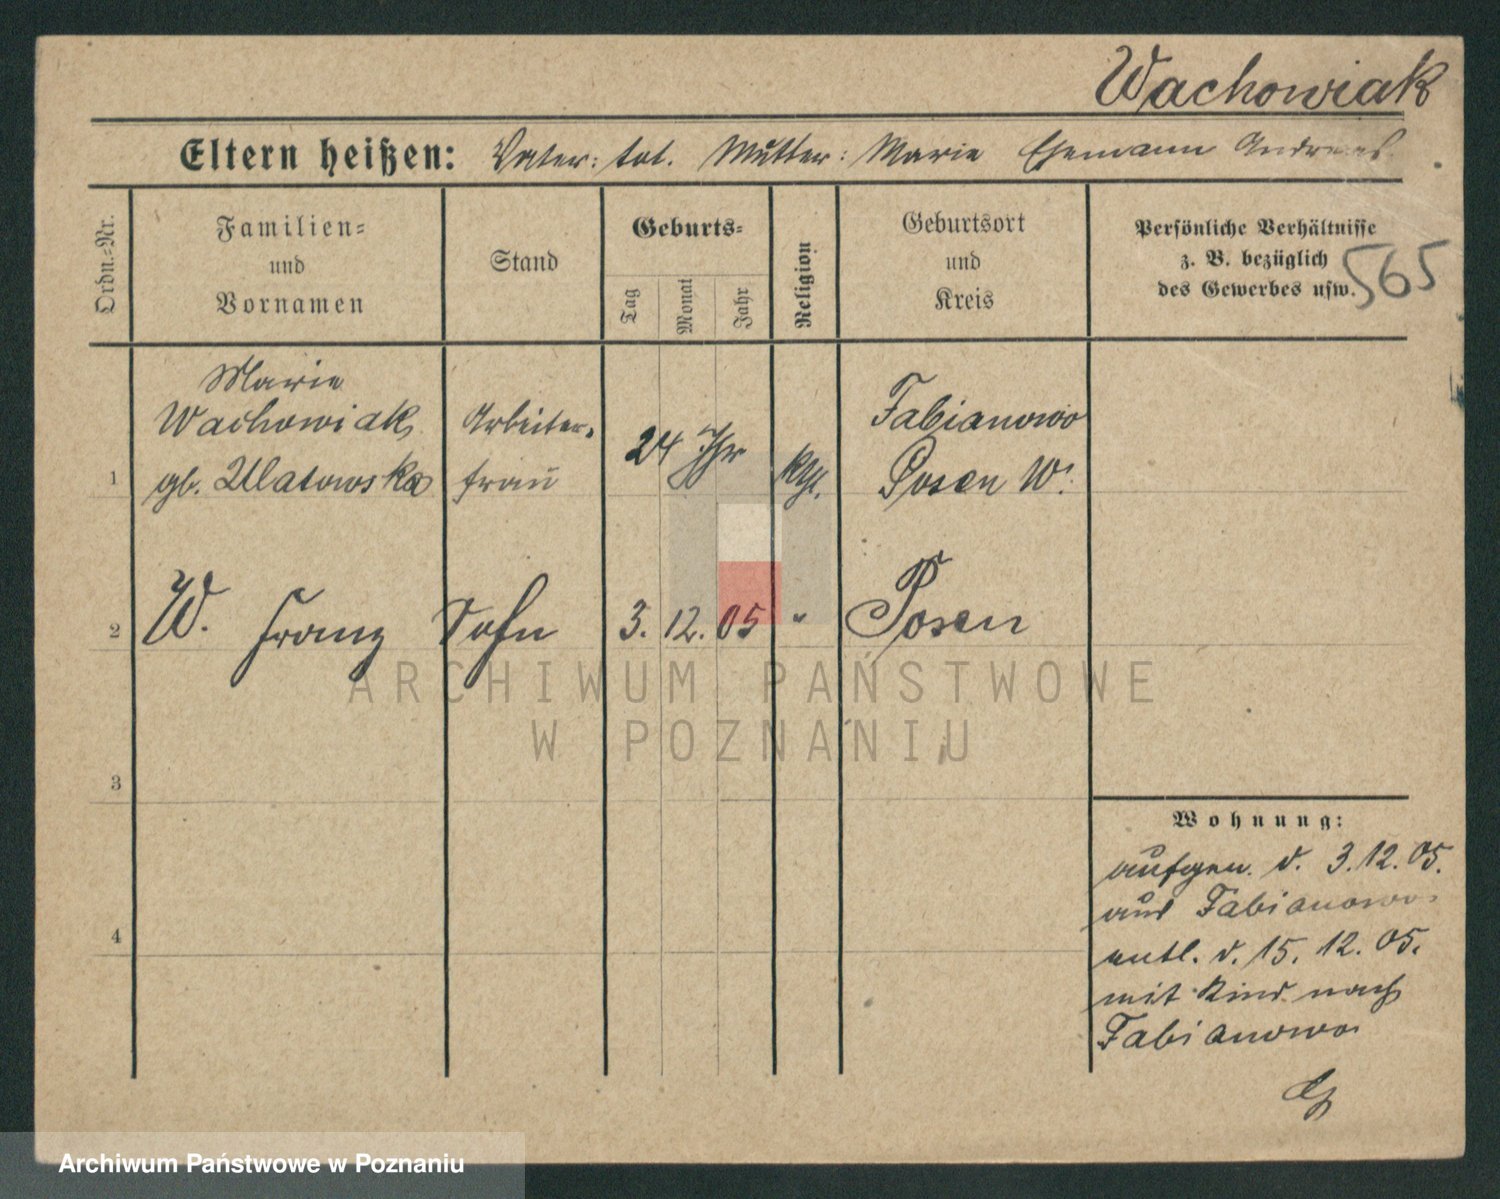 Wachowiak
Eltern heißen: Vater: tot. Mutter: Marie Ehemann Andreas.
Ordn.-Nr.
Familien-
und
Vornamen
Stand
Geburts-
Tag
Monat
Jahr
Religion
Geburtsort
und
Kreis
Persönliche Verhältnisse
z. B. bezüglich
des Gewerbes usw.
565
1
Marie
Wachowiak
gb. Ulatowska
Arbeiter-
frau
24 Jhr
kth.
Fabianowo
Posen W.
2
W. Franz
Sohn
3. 12. 05
"
Posen
ARCHIWUM PAŃSTWOWE
W POZNANIU
3
4
Wohnung:
aufgen. d. 3.12.05.
aus Fabianowo
entl. d. 15. 12. 05.
mit Kind nach
Fabianowo
Archiwum Państwowe w Poznaniu